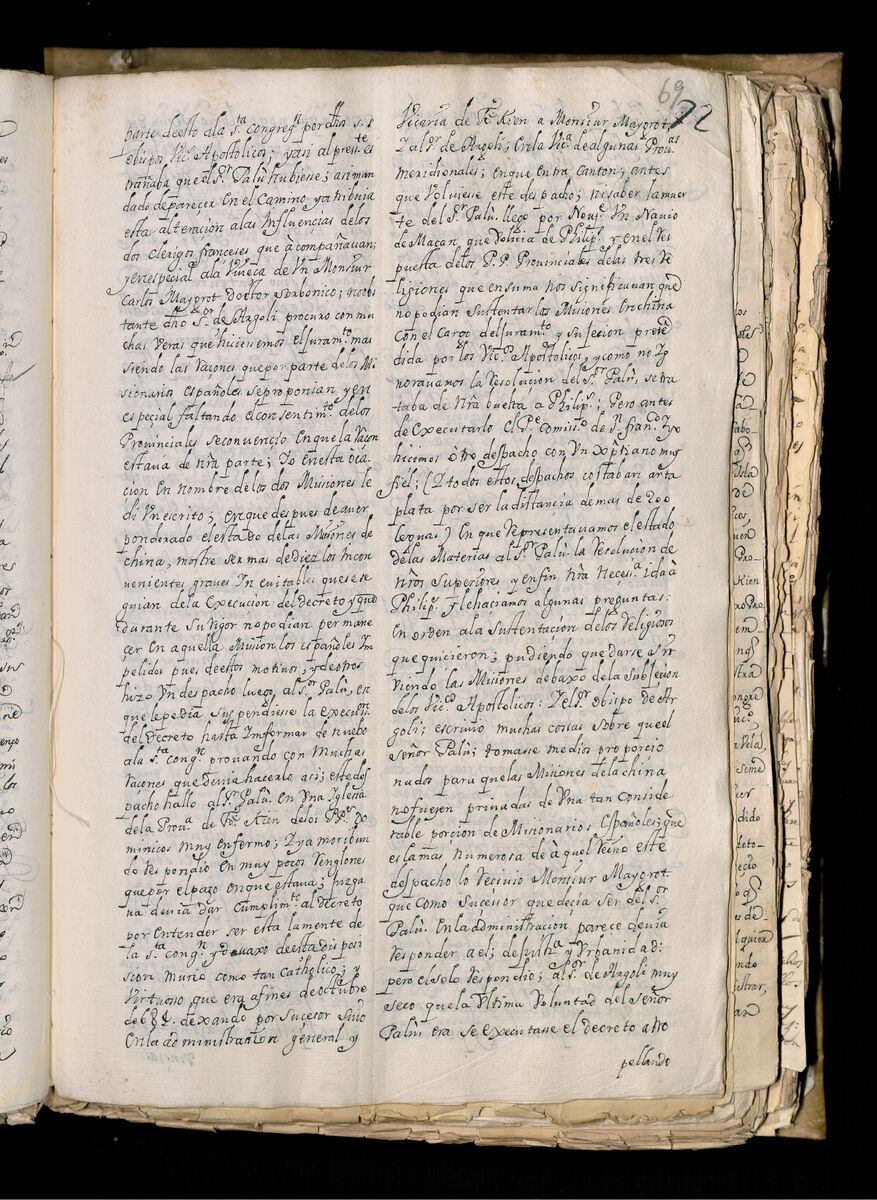 69
72
parte de esto a la s.ta congreg.n por dhos s.s
obispos Vic.s Apostolicos; y asi al press.te es
trañaba que el S.r Palù hubiese; asi man
dado de parecer En el Camino, y atribuia
esta alteracion a las Influencias de los
dos Clerigos franceses que à compañavan;
y en especial a la Viueca de Vn Monsiur
Carlos Maygrot Doctor Sorbonico; no obs
tante dho S.or de Argoli procuro con mu
chas Veras que hiciesemos el juram.to mas
siendo las Raçones que por parte de los Mi
sionarios españoles se proponian, y en
especial faltando el consentim.to de los
Provinciales se convencio En que la Raçon
estava de nrã parte; Yo en esta òca
cion En nombre de los dos Misiones le
di Vn escrito; en que despues de aver
ponderado el estado de las Misiones de
china, mostre ser mas de diez los Incon
venientes graves In evitables que se se
guian de la Execucion del decreto y que
durante su rigor no podian per mane
çer En aquella Mision los españoles Im
pelidos pues de estos motivos, y de otros
hizo Vn despacho luego al S.or Palù, en
que le pedia suspendiese la execus.on
del Decreto hasta Imformar de nuebo
a la s.ta cong.n provando con Muchas
raçones que devia hacerlo asi; este des
pacho hallo al S.r Palù. En Vna Iglesia
de la Prov.a de Fò Kien de los PP.es Do
minicos muy enfermo; Y ya moribun
do respondio En muy pocos Renglones
que por el paso en que estava; Juzga
va devia dar Cumplim.to al Decreto
por Entender ser esta la mente de
la s.ta cong.n y devaxo de esta dis posi
sion murio como tan Catholico; y
Virtuoso que era a fines de octubre
de 684. dexando por sucesor suio
En la ad ministrasion general y
Vicaria de Fò Kien a Monsiur Maygrot
Y al S.r de Argoli; En la Vic.a de algunas Prou.as
meridionales; en que entra Canton; antes
que Volviese este des pacho; ni saber la muer
te del S.r Palù. llego por Nou.e Vn Navio
de Macan, que Volvia de Philip.s y en el Res
puesta de los P.P. Provinciales de las tres Re
ligiones que en suma nos significavan que
no podian sustentar las Misiones En china
con el Cargo del juram.to y sujecion prete
dida por los Vic.s Apostolicos, y como no Ig
noravamos la Resolucion del S.or Palù, se tra
taba de nrã buelta a Philip.s; Pero antes
de Executarlo el P.e Comis.o de S.n fran.co y yo
hicimos òtro despacho con Vn xp̃tiano muy
fiel; (Y todos estos despachos costaban arta
plata por ser la distancia de mas de 200
leguas) En que Representavamos el estado
de las Materias al S.or Palù. la Resolucion de
nr̃os Superiores y en fin nrã Neces.a ida à
Philip.s Y le haciamos algunas preguntas:
En orden a la sustentacion de los Religiosos
que quicieron; pudiendo quedarse sir
viendo las Misiones debaxo de la subjecion
de los Vic.s Apostolicos: Y el S.r obispo de Ar
goli; escrivio muchas cossas sobre que el
señor Palù; tomasse medios pro porcio
nados para que las Misiones de la china
no fuesen privadas de Vna tan Conside
rable porcion de Misionarios, Españoles; que
es la mas numerosa de à quel Reino este
despacho lo Recivio Monsiur Maygrot
que como Sucesor que decia ser del S.r
Palù. En la administracion parece devia
Responder a el; de just.a y Vrbanidad:
pero el solo Respondio; al S.r de Argoli muy
seco que la Vltima Voluntad del señor
Palù era se executase el decreto atro
pellando